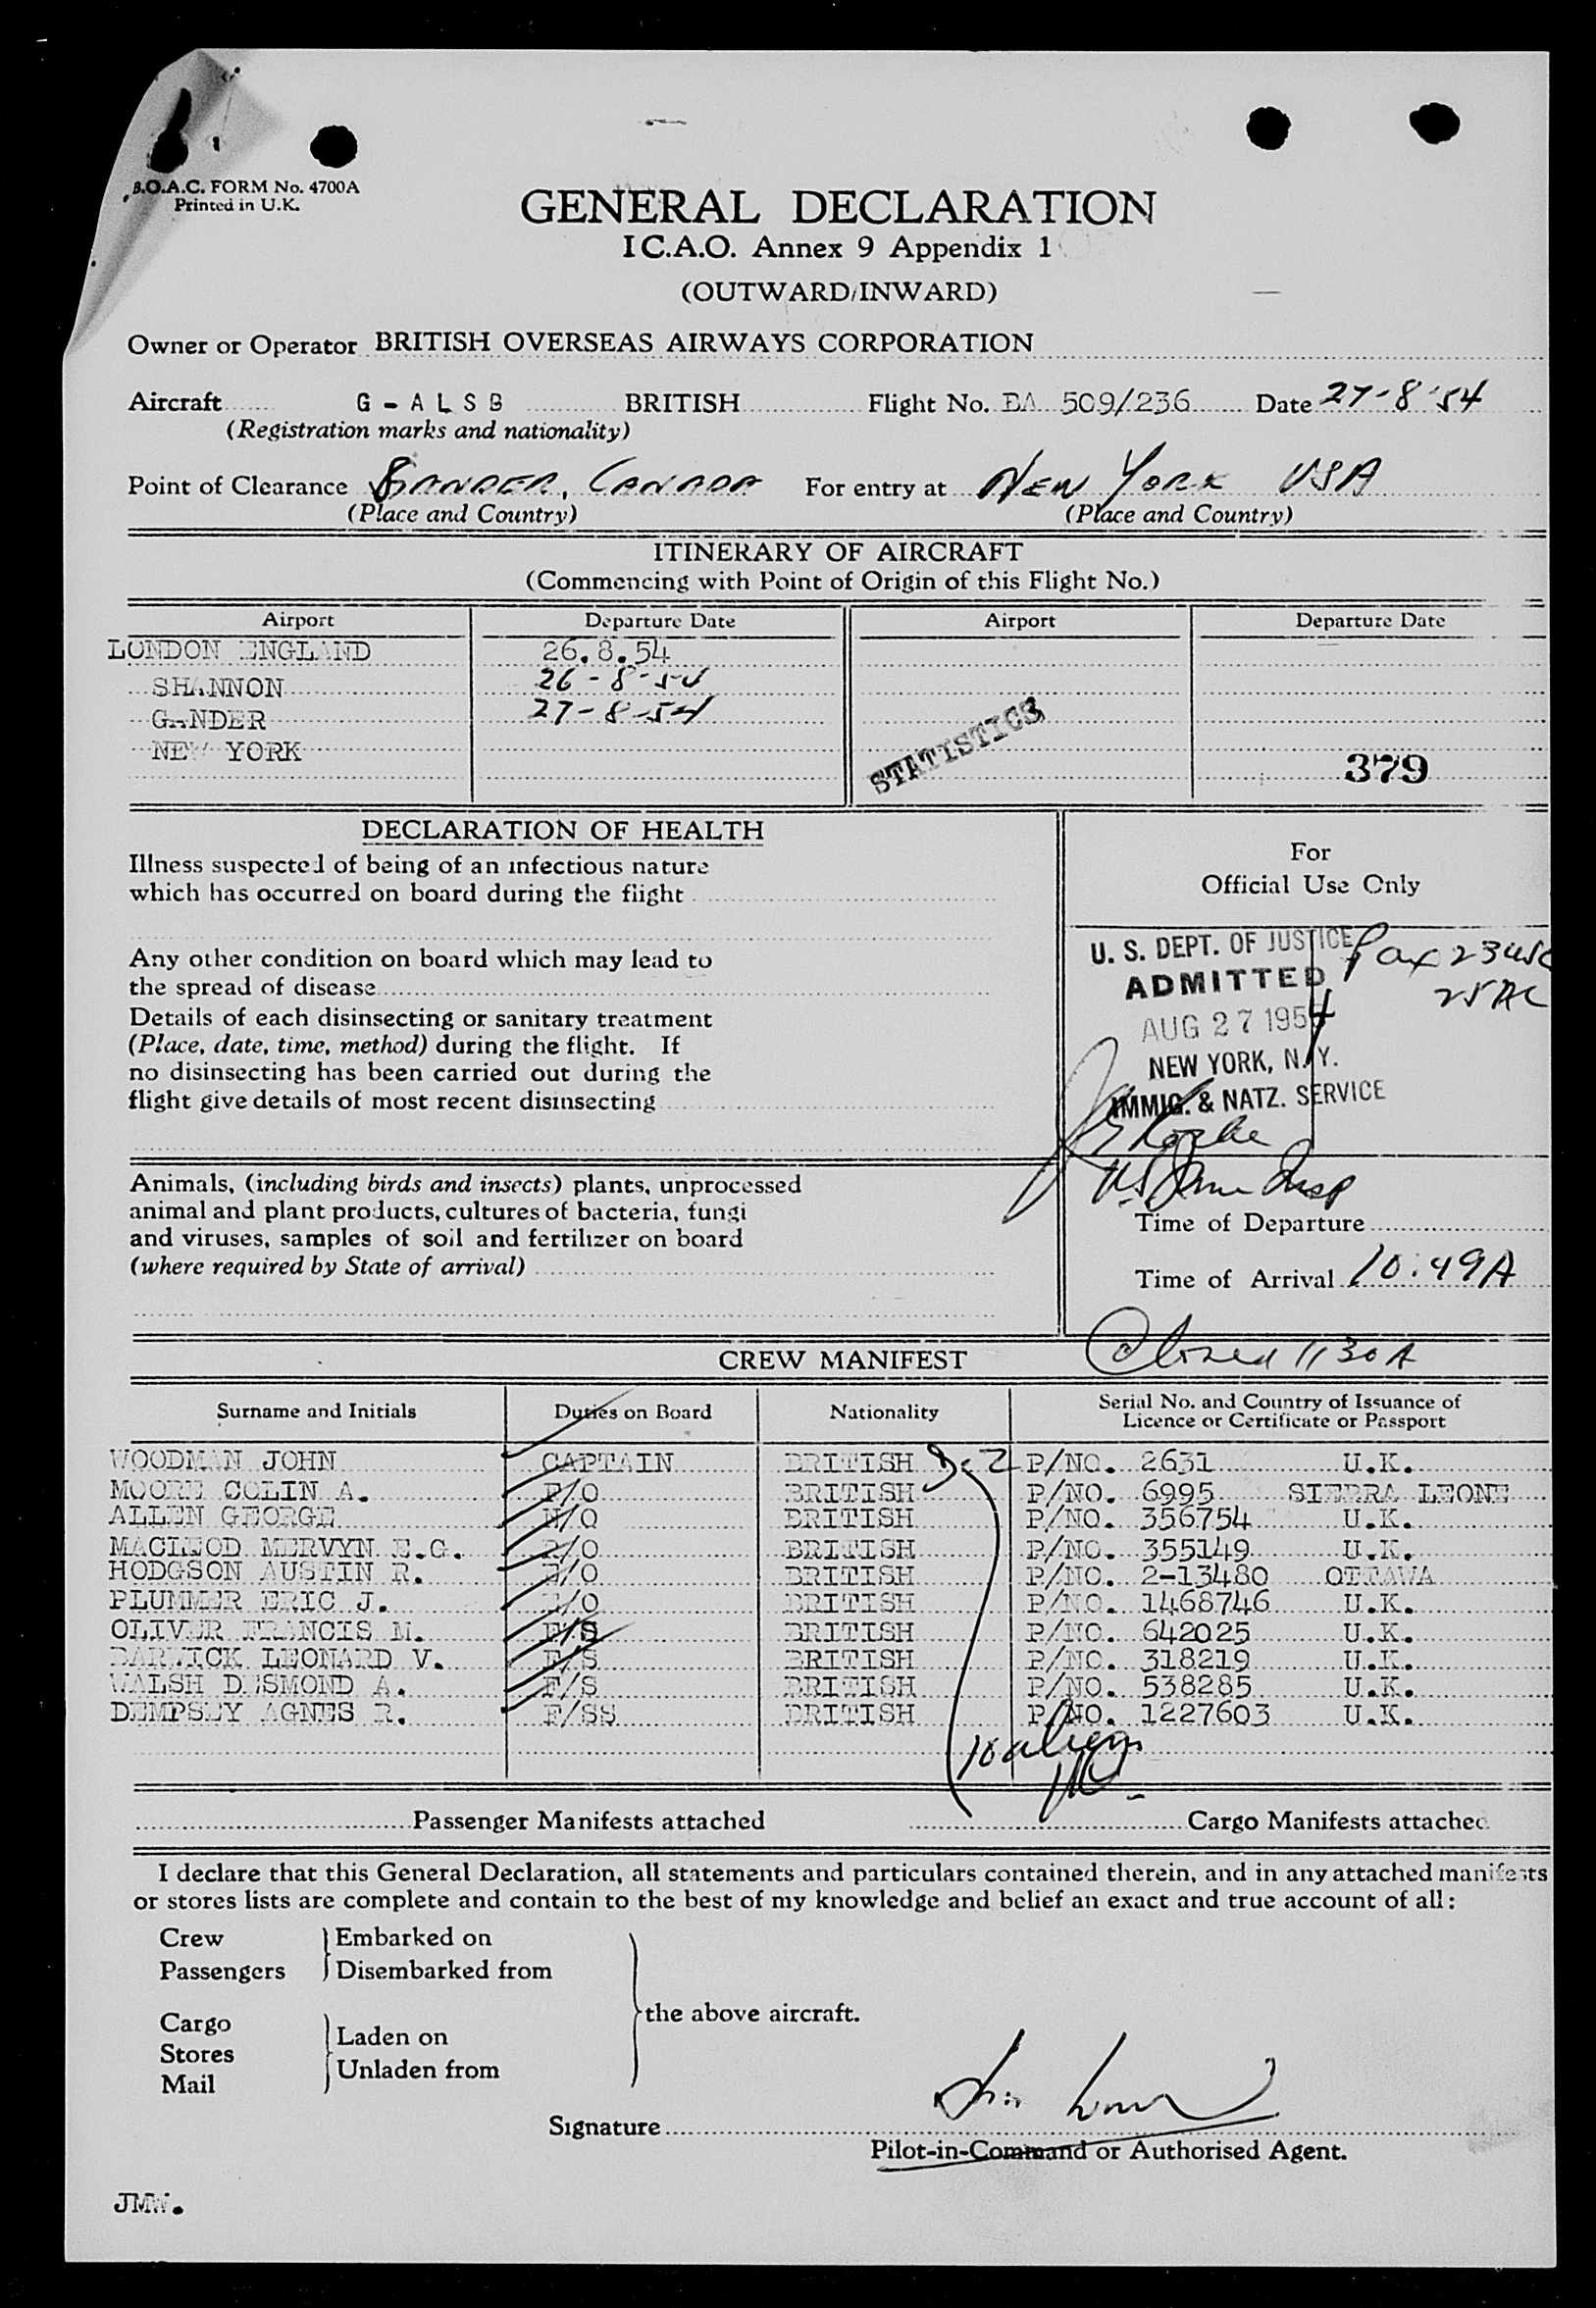 B.O.A.C. FORM No. 4700A
Printed in U.K.
GENERAL DECLARATION
I C.A.O. Annex 9 Appendix 1
(OUTWARD/INWARD)
Owner or Operator BRITISH OVERSEAS AIRWAYS CORPORATION
Aircraft G - A L S B BRITISH Flight No. BA 509/236 Date 27-8-54
(Registration marks and nationality)
Point of Clearance GANDER, CANADA For entry at NEW YORK USA
(Place and Country) (Place and Country)
ITINERARY OF AIRCRAFT
(Commencing with Point of Origin of this Flight No.)
Airport Departure Date Airport Departure Date
LONDON ENGLAND 26.8.54
SHANNON 26-8-54
GANDER 27-8-54
NEW YORK
STATISTICS
379
DECLARATION OF HEALTH
Illness suspected of being of an infectious nature
which has occurred on board during the flight
Any other condition on board which may lead to
the spread of disease
Details of each disinsecting or sanitary treatment
(Place, date, time, method) during the flight. If
no disinsecting has been carried out during the
flight give details of most recent disinsecting
Animals, (including birds and insects) plants, unprocessed
animal and plant products, cultures of bacteria, fungi
and viruses, samples of soil and fertilizer on board
(where required by State of arrival)
For
Official Use Only
U. S. DEPT. OF JUSTICE Pax 23 USC
ADMITTED 25 AC
AUG 27 1954
NEW YORK, N.Y.
IMMIG. & NATZ. SERVICE
US Imm Insp
Time of Departure
Time of Arrival 10:49A
Closed 1130A
CREW MANIFEST
Surname and Initials Duties on Board Nationality Serial No. and Country of Issuance of
Licence or Certificate or Passport
WOODMAN JOHN CAPTAIN BRITISH P/NO. 2631 U.K.
MOORE COLIN A. F/O BRITISH P/NO. 6995 SIERRA LEONE
ALLEN GEORGE N/O BRITISH P/NO. 356754 U.K.
MACLEOD MERVYN E.G. R/O BRITISH P/NO. 355149 U.K.
HODGSON AUSTIN R. E/O BRITISH P/NO. 2-13480 OTTAWA
PLUMMER ERIC J. E/O BRITISH P/NO. 1468746 U.K.
OLIVER FRANCIS M. F/S BRITISH P/NO. 642025 U.K.
BARWICK LEONARD V. F/S BRITISH P/NO. 318219 U.K.
WALSH DESMOND A. F/S BRITISH P/NO. 538285 U.K.
DEMPSEY AGNES R. F/SS BRITISH P/NO. 1227603 U.K.
10 aliens
Passenger Manifests attached Cargo Manifests attached
I declare that this General Declaration, all statements and particulars contained therein, and in any attached manifests
or stores lists are complete and contain to the best of my knowledge and belief an exact and true account of all:
Crew Embarked on
Passengers Disembarked from
the above aircraft.
Cargo
Stores Laden on
Mail Unladen from
Signature
Pilot-in-Command or Authorised Agent.
JMW.